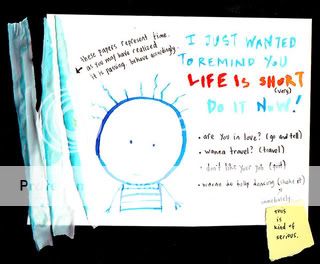 these papers represent time.
as you may have realized
it is passing. behave accordingly.
I JUST WANTED
TO REMIND YOU
LIFE IS SHORT
(very)
DO IT NOW!
• are you in love? (go and tell)
• wanna travel? (travel)
• don't like your job (quit)
• wanna do belly dancing (shake it)
immediately...
this
is
kind of
serious.